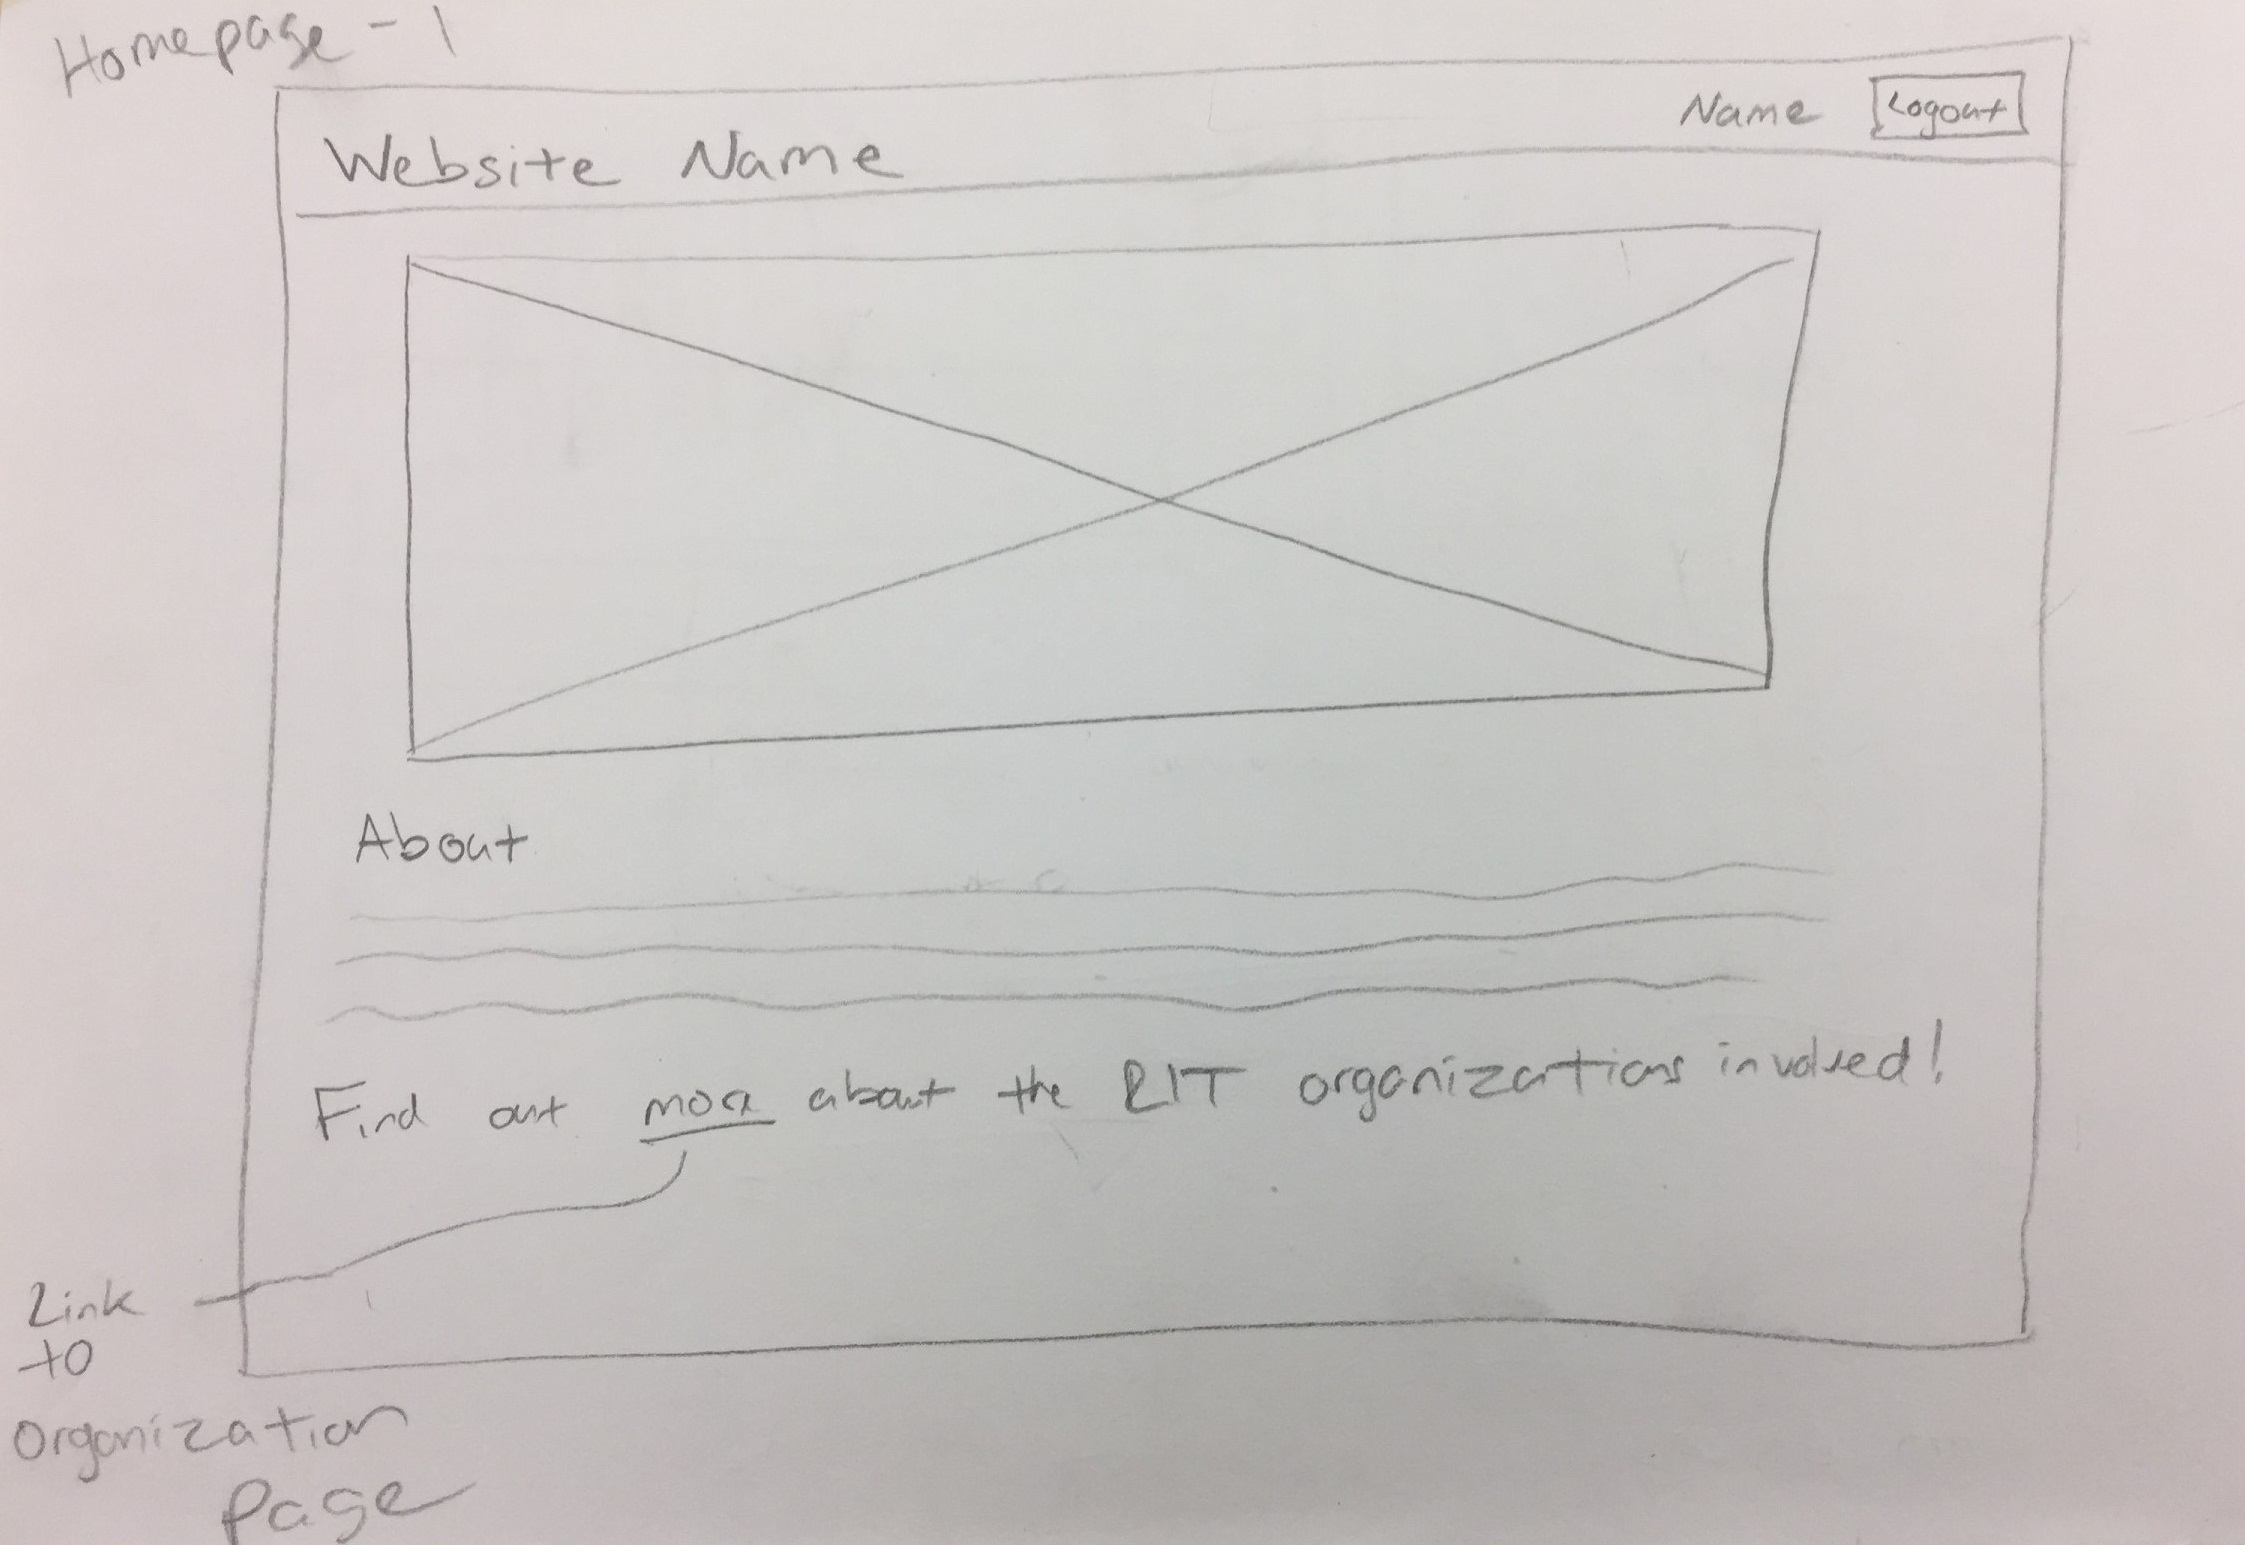 Homepage - 1
Website Name
Name
Logout
About
Find out more about the RIT organizations involved!
Link
to
Organization
Page